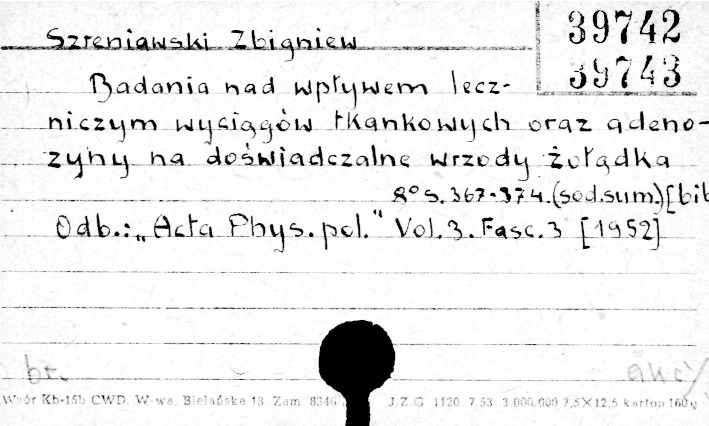 39742
39743
Szreniawski Zbigniew
Badania nad wpływem lecz-
niczym wyciągów tkankowych oraz adeno-
zyny na doświadczalne wrzody żołądka
8° s. 367-374. (sod.sum.) [bib
Odb.: „Acta Phys. pol." Vol. 3. Fasc. 3 [1952]
br.
akc/
Wzór Kb-15b CWD. W-wa, Bielańska 18. Zam. 8346 J.Z.G 1120 7.53 3.000.000 7,5×12,5 karton 160g